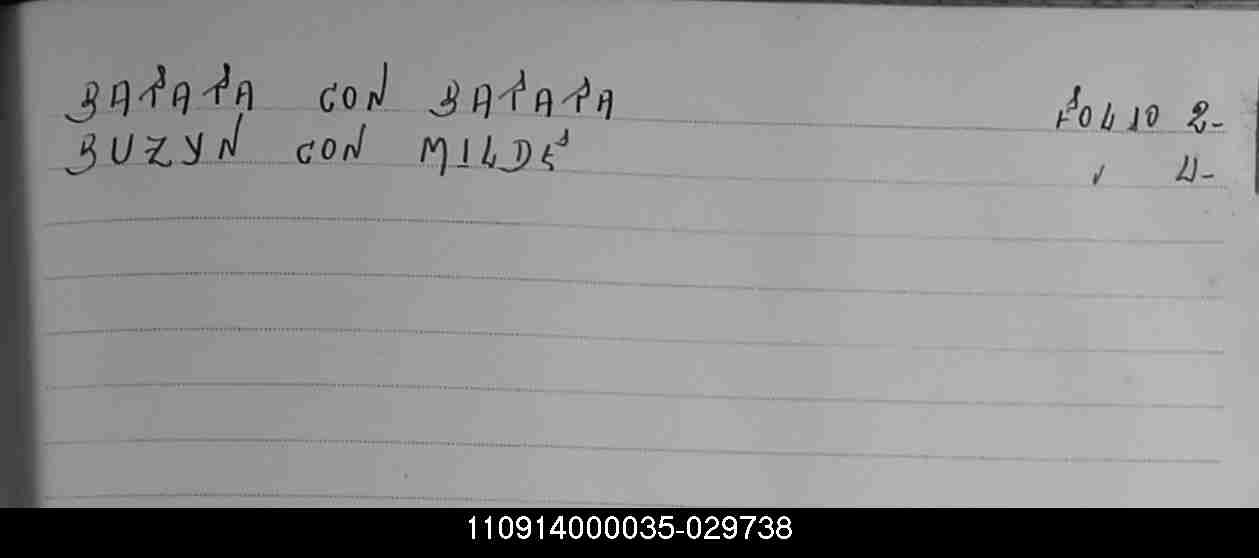 BATATA CON BATATA FOLIO 2-
BUZYN CON MILDE " 4-
110914000035-029738